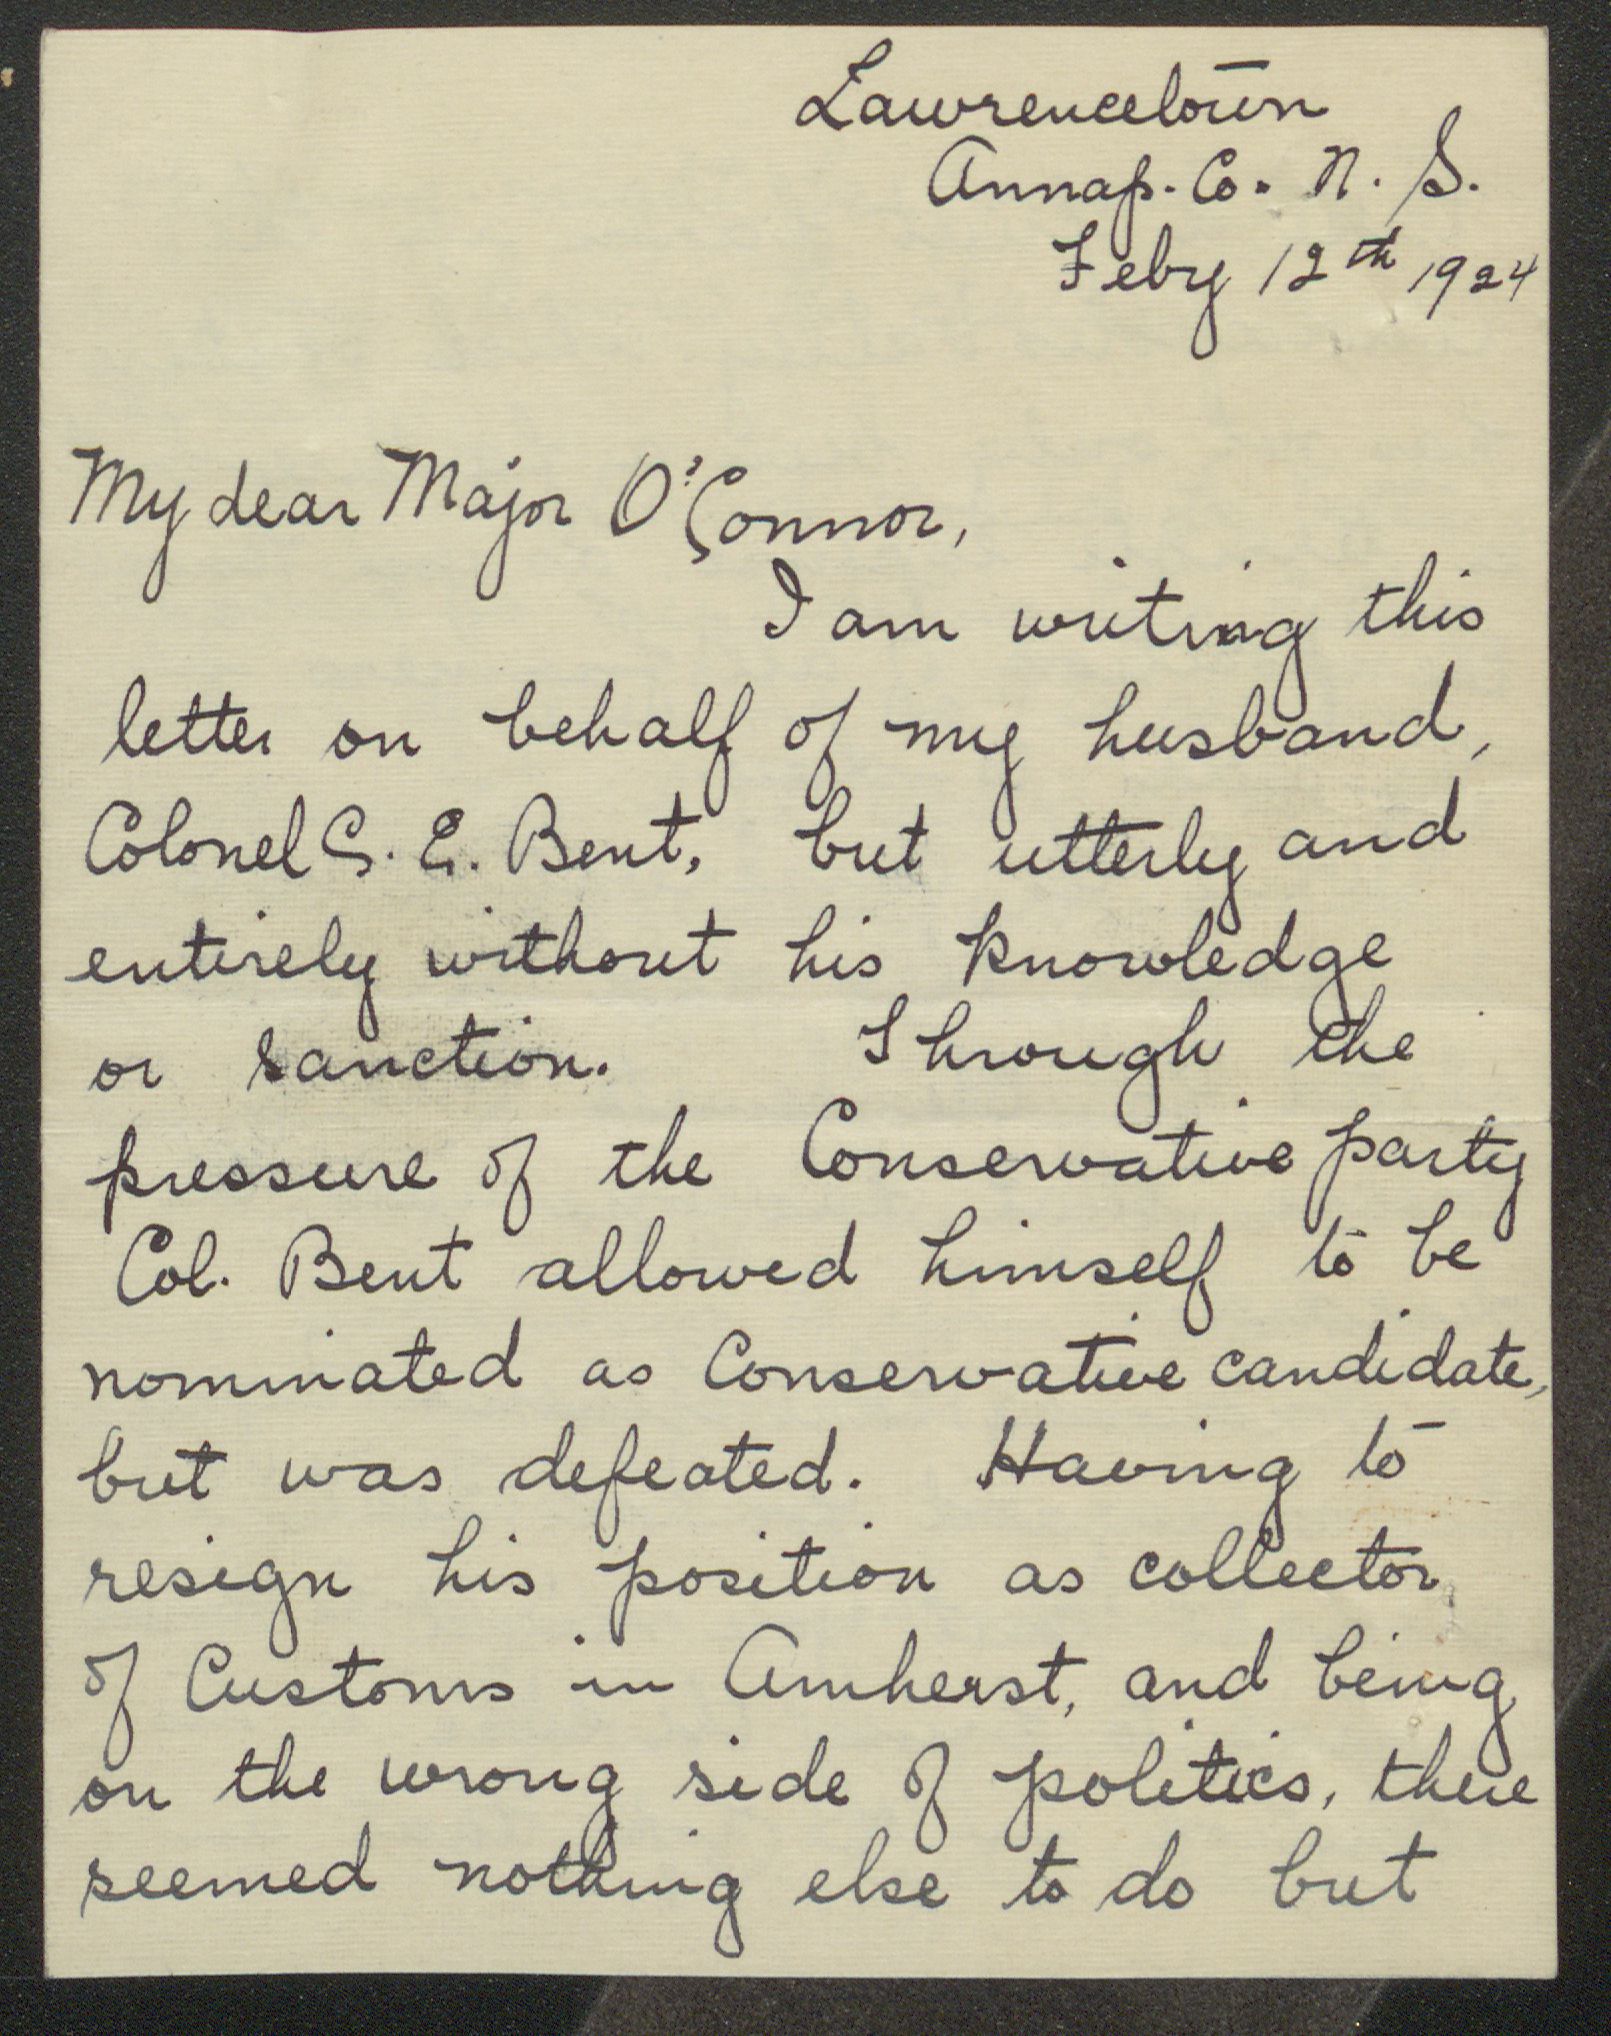 Lawrencetown
Annap. Co. N. S.
Feby 12th 1924
My dear Major O'Connor,
I am writing this
letter on behalf of my husband,
Colonel C. E. Bent, but utterly and
entirely without his knowledge
or sanction. Through the
pressure of the Conservative party
Col. Bent allowed himself to be
nominated as Conservative candidate,
but was defeated. Having to
resign his position as collector
of Customs in Amherst, and being
on the wrong side of politics, there
seemed nothing else to do but